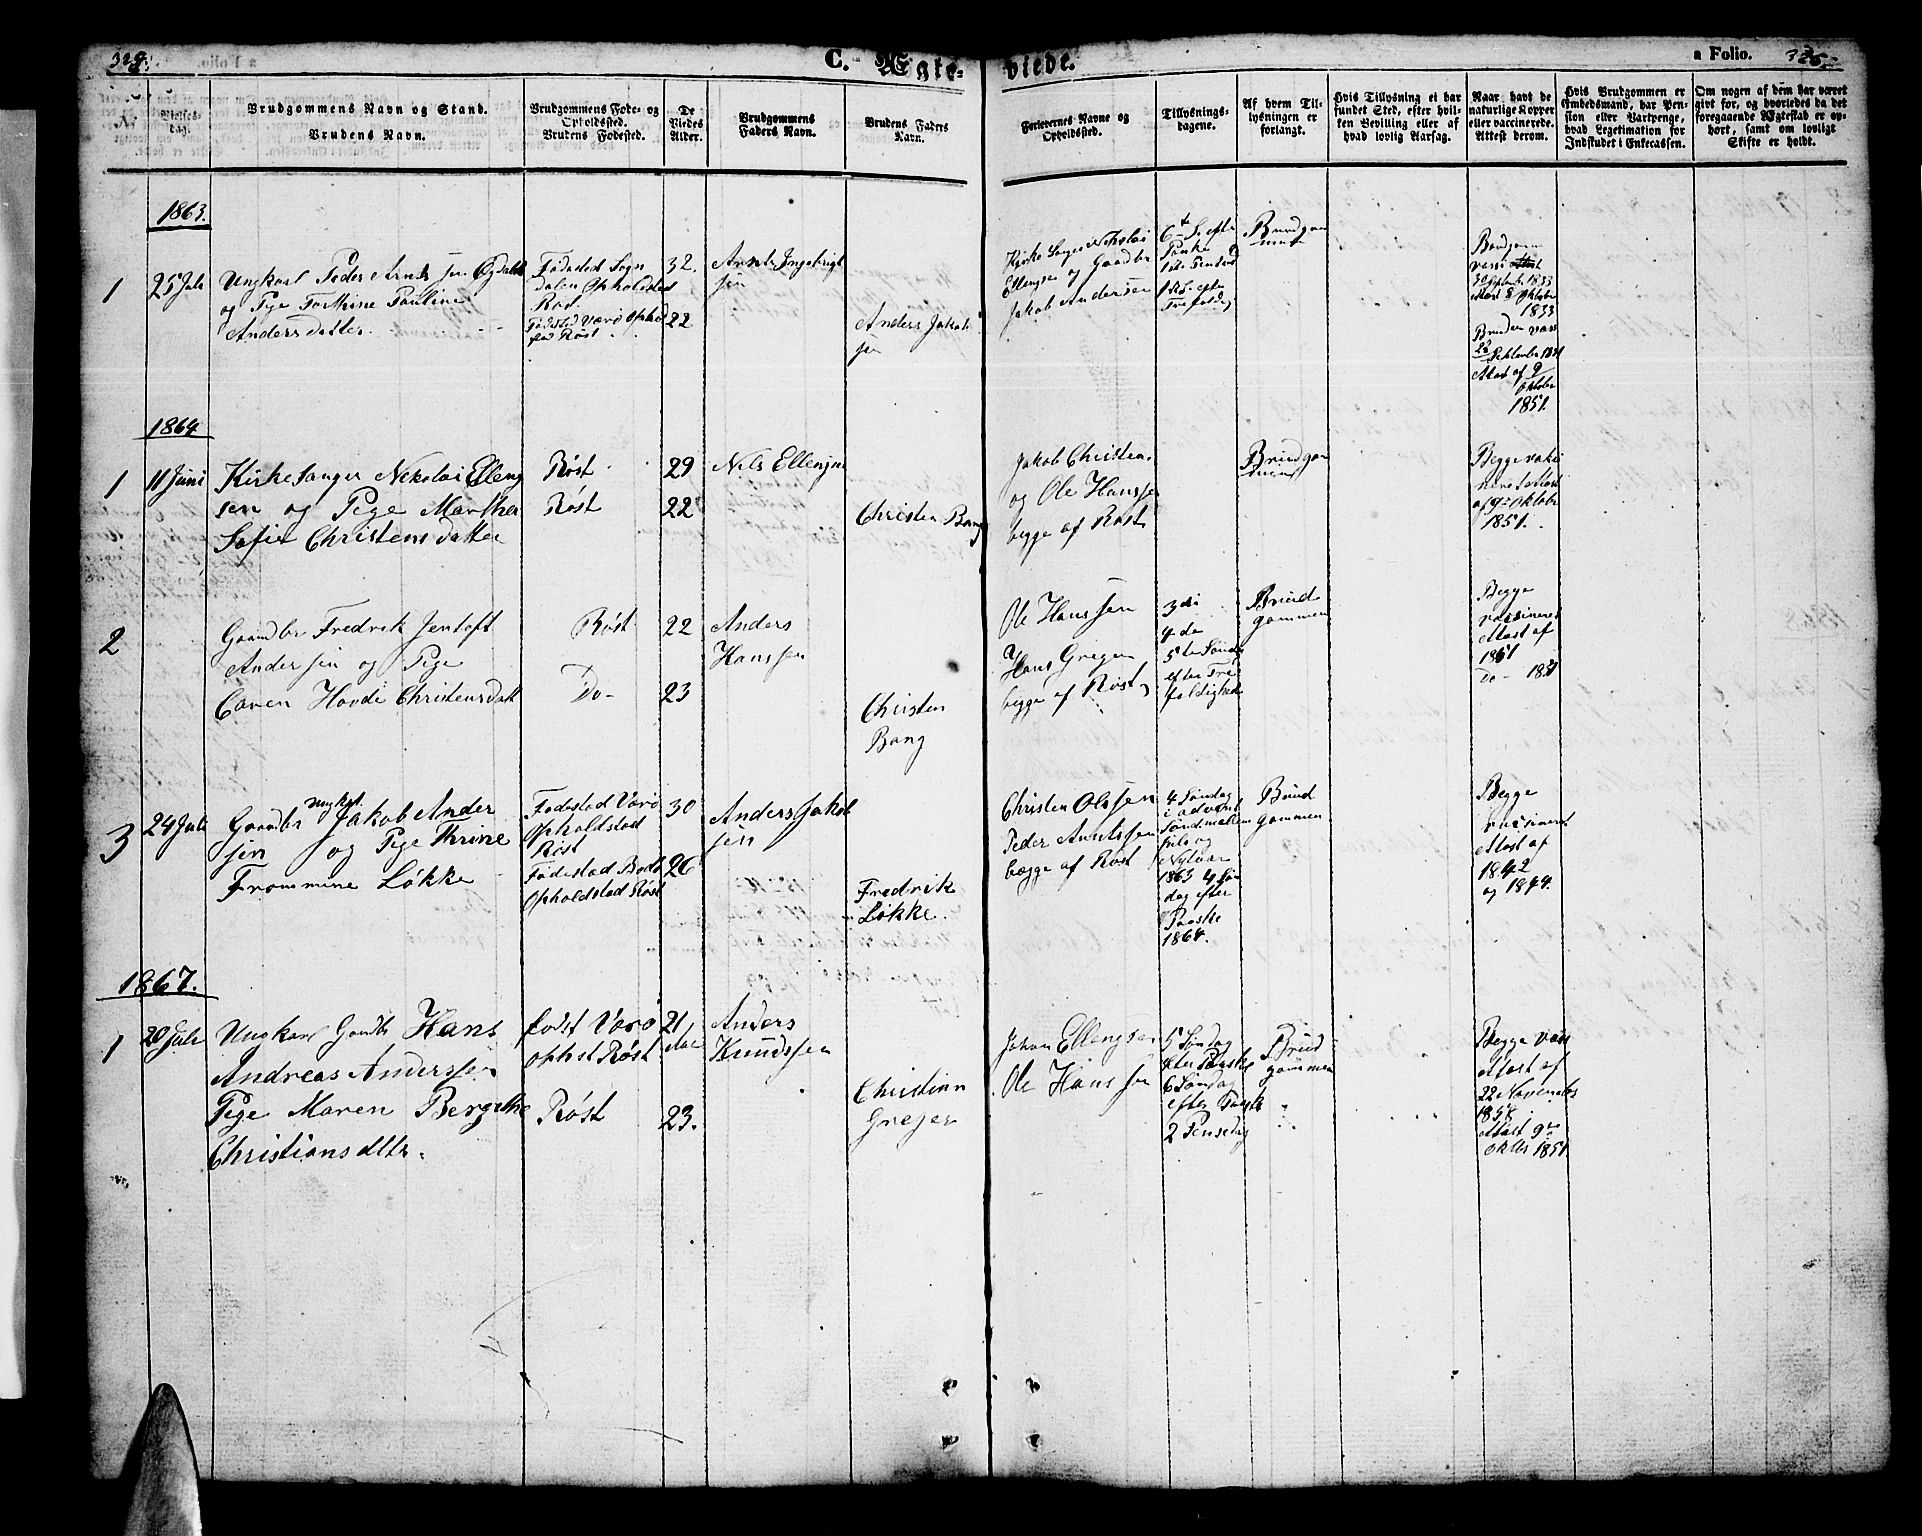 C. Ægte-
viede.
a Folio.
Vielses-
dag.
Brudgommens Navn og Stand.
Brudens Navn.
Brudgommens Føde- og
Opholdssted.
Brudens Fødested.
De
Viedes
Alder.
Brudgommens
Faders Navn.
Brudens Faders
Navn.
Forlovernes Navne og
Opholdssted.
Tillysnings-
dagene.
Af hvem Til-
lysningen er
forlangt.
Hvis Tillysning ei har
fundet Sted, efter hvil-
ken Bevilling eller af
hvad lovlig Aarsag.
Naar havt de
naturlige Kopper
eller vaccinerede.
Attest derom.
Hvis Brudgommen er
Embedsmand, har Pen-
sion eller Vartpenge,
hvad Legetimation for
Indskudet i Enkecassen.
Om nogen af dem har været
givt før, og hvorledes da det
foregaaende Ægtestad er op-
hørt, samt om lovligt
Skifte er holdt.
1863.
1
25 Juli
Ungkarl Peder Arnts sen Øgdahl
og Pige Torthine Pauline
Anders datter
Fødested Sogn
dalen Opholdsted
Røst.
Fødsted Værø Ophold
sted Røst.
32.
22
Arnts Ingebrigt
sen
Anders Jakob
sen
Kirke Sanger Nikolai
Ellengsen og Gaardbr
Jakob Andersen
6te S. efter
Paaske
1ste Pensedag
1 S. efter
Trefoldig
Brudgom
men
Brudgom
vassi
30 September 1833
Attest 8 Oktober
1833
Bruden vass
23 September 1851
Attest af 9
Oktober
1851.
1864
1
11 Juni
Kirke Sanger Nekolai Elleng
sen og Pige Marthea
Sofie Christens datter
Røst
Røst
29
22
Nils Ellensen
Christen Bang
Jakob Christens.
og Ole Hanssen
begge af Røst
Brudgom
men
Begge vaksi
nere Attest
af 9de Oktober
1851.
2
Gaardbr Fredrik Jentoft
Andersen og Pige
Caren Hovdi Christensdatt
Røst
Do-
22
23
Anders
Hanssen
Christen
Bang
Ole Hanssen
Hans Greger
begge af Røst
3di
4de
5te Sønd
efter Tre
foldighed
Brud
gommen
Begge
vassineret
Attest af
1851
Do- 1851
3
24 Juli
Gaardbr ungkarl Jakob Ander
sen og Pige Thrine
Frommene Løkke
Fødestad Værø
Opholdstad
Røst
Fødestad Bodø
Opholdstad Røst
30
26
Anders Jakob
sen
Fredrik
Løkke.
Christen Olssen
Peder Arntssen
begge af Røst
4 Søndag
i advent
Søndmellem
Jule og
Nytaar
1863 4 Søn
dag efter
Paaske
1864.
Brud
gommen
Begge
vassineret
Attest af
1842
og 1844.
1867.
1
20 Juli
Ungkarl Gaardb Hans
Andreas Anderssen
Pige Maren Bergethe
Christians dtter.
fødst Værø
ophst Røst
Røst
21
Aar
23.
Anders
Knudssen
Christian
Greger
Johan Ellengsen
Ole Hanssen
5 Søndag
efter Paaske
6 Søndag
efter Paaske
2 Pensedag
Brud
gommen
Begge vass
Attest af
22 November
1858
Attest 9de
Oktbr 1851